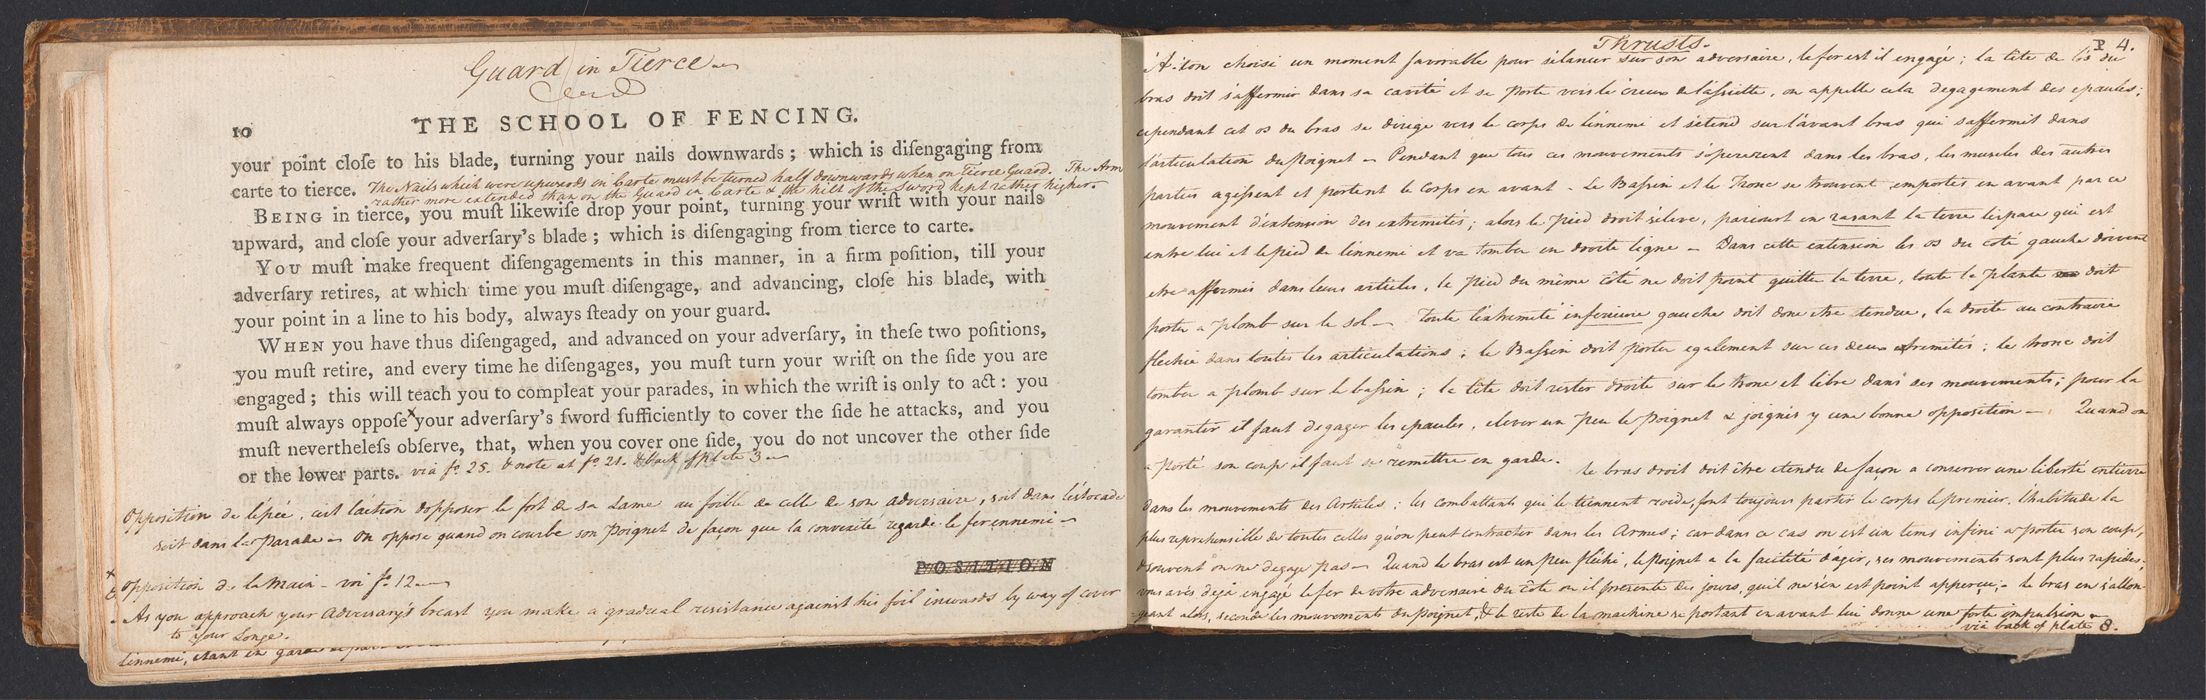 Guard in Tierce
10
THE SCHOOL OF FENCING.
your point cloſe to his blade, turning your nails downwards; which is diſengaging from
carte to tierce. The Nails which were upwards in Carte must be turned half downwards when on Tierce Guard. The Arm
rather more extended than on the Guard in Carte & the hilt of the Sword kept rather higher.
BEING in tierce, you muſt likewiſe drop your point, turning your wriſt with your nails
upward, and cloſe your adverſary's blade; which is diſengaging from tierce to carte.
YOU muſt make frequent diſengagements in this manner, in a firm poſition, till your
adverſary retires, at which time you muſt diſengage, and advancing, cloſe his blade, with
your point in a line to his body, always ſteady on your guard.
WHEN you have thus diſengaged, and advanced on your adverſary, in theſe two poſitions,
you muſt retire, and every time he diſengages, you muſt turn your wriſt on the ſide you are
engaged; this will teach you to compleat your parades, in which the wriſt is only to act: you
muſt always oppoſe x your adverſary's ſword ſufficiently to cover the ſide he attacks, and you
muſt nevertheleſs obſerve, that, when you cover one ſide, you do not uncover the other ſide
or the lower parts. via fo. 25. & note at fo. 21. & back of Plate 3
Opposition de l'épée, c'est l'action d'opposer le fort de sa Lame au foible de celle de son adversaire, soit dans l'éstocade
soit dans la Parade - On oppose quand on courbe son Poignet de façon que la convexité regarde le fer ennemi -
POSITION
x opposition de la Main - voi fo. 12
As you approach your Adversary's breast you make a gradual resistance against his foil inwards by way of cover
to your Longe.
l'ennemi, étant en garde
Thrusts.
P 4.
A-t-on choisi un moment favorable pour s'élancer sur son adversaire, le fer est il engagé; la tête de l'os du
bras doit s'affermir dans sa cavité et se porte vers le creux de l'assiette, on appelle cela degagement des epaules;
cependant cet os du bras se dirige vers le corps de l'ennemi et s'étend sur l'avant bras qui s'affermit dans
l'articulation du Poignet - Pendant que tous ces mouvements s'operent dans les bras, les muscles des autres
parties agissent et portent le Corps en avant - Le Bassin et le Tronc se trouvent emportés en avant par ce
mouvement d'extension des extremités; alors le Pied droit s'éleve, parcourt en rasant la terre l'espace qui est
entre lui et le pied de l'ennemi et va tomber en droite ligne - Dans cette extension les os du coté gauche doivent
etre affermis dans leurs articles, le Pied du même côte ne doit point quitter la terre, toute la plante doit
porter a plomb sur le sol - Toute l'extremité inferieure gauche doit donc etre etendue, la droite au contraire
flechie dans toutes les articulations; le Bassin doit porter egalement sur ces deux extremités; le tronc doit
tomber a plomb sur le bassin; la tête doit rester droite sur le tronc et libre dans ses mouvements; pour la
garantir il faut degager les epaules, elever un peu le Poignet & joignés y une bonne opposition - Quand on
a Porté son coup il faut se remettre en garde.
Le bras droit doit être etendu de façon a conserver une liberté entiere
dans les mouvements des Articles; les combattants qui le tiennent roide, font toujours partir le corps le premier. l'habitude la
plus reprehensible de toutes celles qu'on peut contracter dans les Armes; car dans ce cas on est un tems infini a porter son coup,
& souvent on ne degage pas - Quand le bras est un peu fléchi, le Poignet a la facilité d'agir, ses mouvements sont plus rapides.
vous avés déja engagé le fer de votre adversaire du côté ou il presente des jours, qu'il ne s'en est point apperçu; - Le bras en s'allon-
geant alors, seconde les mouvements du Poignet, & le reste de la machine se portant en avant lui donne une forte impulsion -
via back of plate 8.